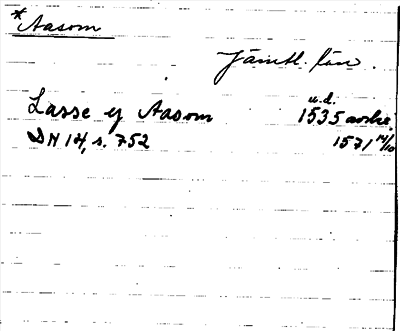 *Aasom
Jämtl. län.
u.d.
Lasse y Aasom 1535 avskr.
DN 14, s. 752 1571 14/10